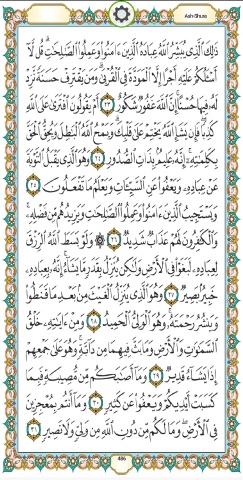 Ash-Shura
ذَٰلِكَ ٱلَّذِى يُبَشِّرُ ٱللَّهُ عِبَادَهُ ٱلَّذِينَ ءَامَنُوا۟ وَعَمِلُوا۟ ٱلصَّٰلِحَٰتِ ۗ قُل لَّآ
أَسْـَٔلُكُمْ عَلَيْهِ أَجْرًا إِلَّا ٱلْمَوَدَّةَ فِى ٱلْقُرْبَىٰ ۗ وَمَن يَقْتَرِفْ حَسَنَةً نَّزِدْ
لَهُۥ فِيهَا حُسْنًا ۚ إِنَّ ٱللَّهَ غَفُورٌ شَكُورٌ ٢٣ أَمْ يَقُولُونَ ٱفْتَرَىٰ عَلَى ٱللَّهِ
كَذِبًا ۖ فَإِن يَشَإِ ٱللَّهُ يَخْتِمْ عَلَىٰ قَلْبِكَ ۗ وَيَمْحُ ٱللَّهُ ٱلْبَٰطِلَ وَيُحِقُّ ٱلْحَقَّ
بِكَلِمَٰتِهِۦٓ ۚ إِنَّهُۥ عَلِيمٌۢ بِذَاتِ ٱلصُّدُورِ ٢٤ وَهُوَ ٱلَّذِى يَقْبَلُ ٱلتَّوْبَةَ
عَنْ عِبَادِهِۦ وَيَعْفُوا۟ عَنِ ٱلسَّيِّـَٔاتِ وَيَعْلَمُ مَا تَفْعَلُونَ ٢٥
وَيَسْتَجِيبُ ٱلَّذِينَ ءَامَنُوا۟ وَعَمِلُوا۟ ٱلصَّٰلِحَٰتِ وَيَزِيدُهُم مِّن فَضْلِهِۦ ۚ
وَٱلْكَٰفِرُونَ لَهُمْ عَذَابٌ شَدِيدٌ ٢٦ ۞ وَلَوْ بَسَطَ ٱللَّهُ ٱلرِّزْقَ
لِعِبَادِهِۦ لَبَغَوْا۟ فِى ٱلْأَرْضِ وَلَٰكِن يُنَزِّلُ بِقَدَرٍ مَّا يَشَآءُ ۚ إِنَّهُۥ بِعِبَادِهِۦ
خَبِيرٌۢ بَصِيرٌ ٢٧ وَهُوَ ٱلَّذِى يُنَزِّلُ ٱلْغَيْثَ مِنۢ بَعْدِ مَا قَنَطُوا۟
وَيَنشُرُ رَحْمَتَهُۥ ۚ وَهُوَ ٱلْوَلِىُّ ٱلْحَمِيدُ ٢٨ وَمِنْ ءَايَٰتِهِۦ خَلْقُ
ٱلسَّمَٰوَٰتِ وَٱلْأَرْضِ وَمَا بَثَّ فِيهِمَا مِن دَآبَّةٍ ۚ وَهُوَ عَلَىٰ جَمْعِهِمْ
إِذَا يَشَآءُ قَدِيرٌ ٢٩ وَمَآ أَصَٰبَكُم مِّن مُّصِيبَةٍ فَبِمَا
كَسَبَتْ أَيْدِيكُمْ وَيَعْفُوا۟ عَن كَثِيرٍ ٣٠ وَمَآ أَنتُم بِمُعْجِزِينَ
فِى ٱلْأَرْضِ ۖ وَمَا لَكُم مِّن دُونِ ٱللَّهِ مِن وَلِىٍّ وَلَا نَصِيرٍ ٣١
486